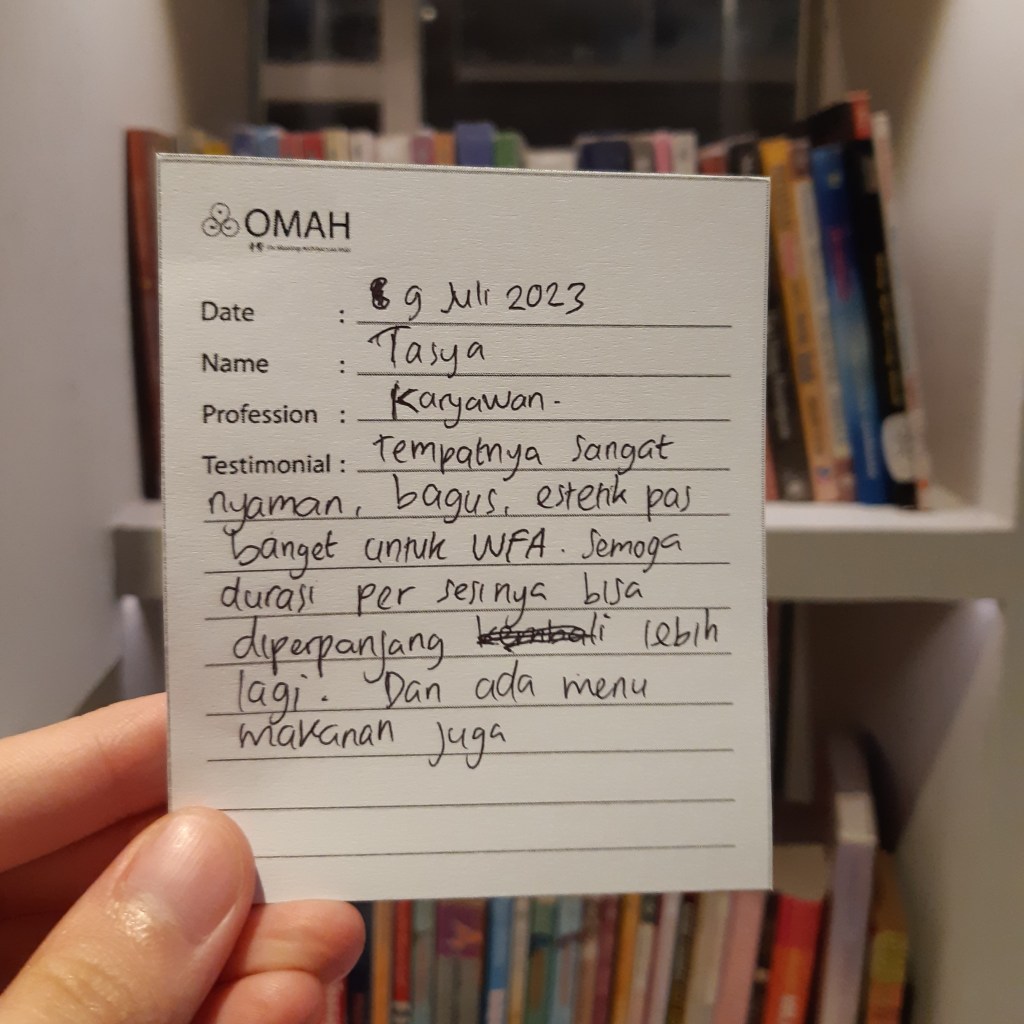 OMAH
Date : 9 Juli 2023
Name : Tasya
Profession : Karyawan.
Testimonial : Tempatnya sangat
nyaman, bagus, estetik pas
banget untuk WFA. Semoga
durasi per sesinya bisa
diperpanjang lebih
lagi. Dan ada menu
makanan juga